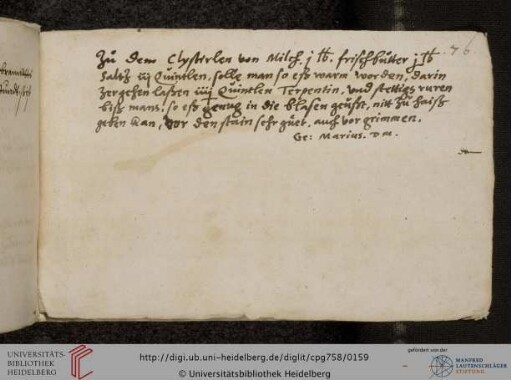 76.
Zu dem Clystirlen von Milch. j ℔. frisch butter j ℔
Saltz iij Quintlen, solle man so eß warm worden, darin
zergehen lassen iiij Quintlen Terpentin, und stettigs ruren
biß mans, so eß genug in die blasen geüßt, nitt zu haiß
geben kan, vor den stain sehr guet, auch vor grimmen.
Ge: Marius. D m.
UNIVERSITÄTS-
BIBLIOTHEK
HEIDELBERG
http://digi.ub.uni-heidelberg.de/diglit/cpg758/0159
© Universitätsbibliothek Heidelberg
gefördert von der
MANFRED
LAUTENSCHLÄGER
STIFTUNG